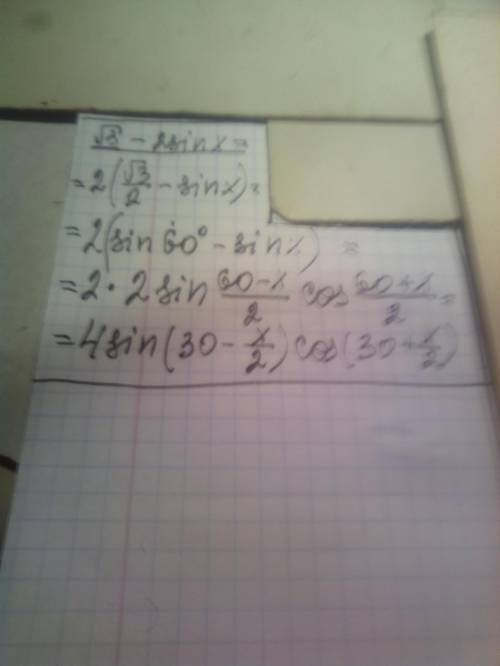 √3 - 2sinx =
= 2(√3/2 - sinx) =
= 2(sin 60° - sinx) =
= 2 · 2 sin (60-x)/2 cos (60+x)/2 =
= 4 sin(30 - x/2) cos(30 + x/2)